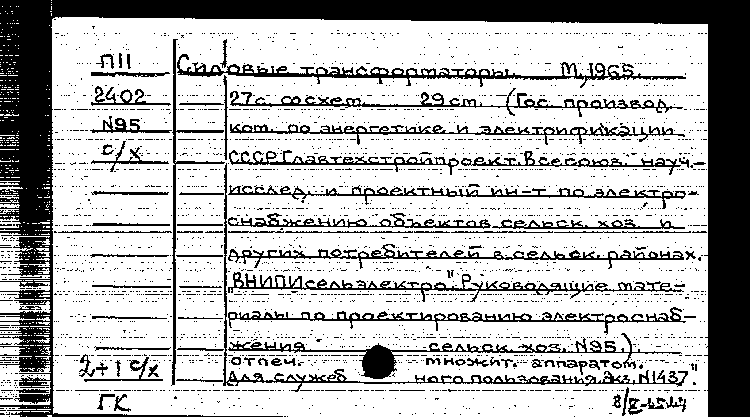 П11 Силовые трансформаторы. М, 1965.
2402 27 с. со схем. 29 см. (Гос. производ.
N95 ком. по энергетике и электрификации
с/х СССР. Главтехстройпроект. Всесоюз. науч.-
исслед. и проектный ин-т по электро-
снабжению объектов сельск. хоз. и
других потребителей в сельск. районах.
"ВНИПИсельэлектро". Руководящие мате-
риалы по проектированию электроснаб-
жения сельск. хоз. N95.)
2+1 с/х отпеч. множит. аппаратом.
Для служеб ного пользования. Экз. N1437."
ГК